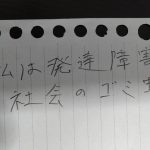 ムは発達障害
社会のゴミ